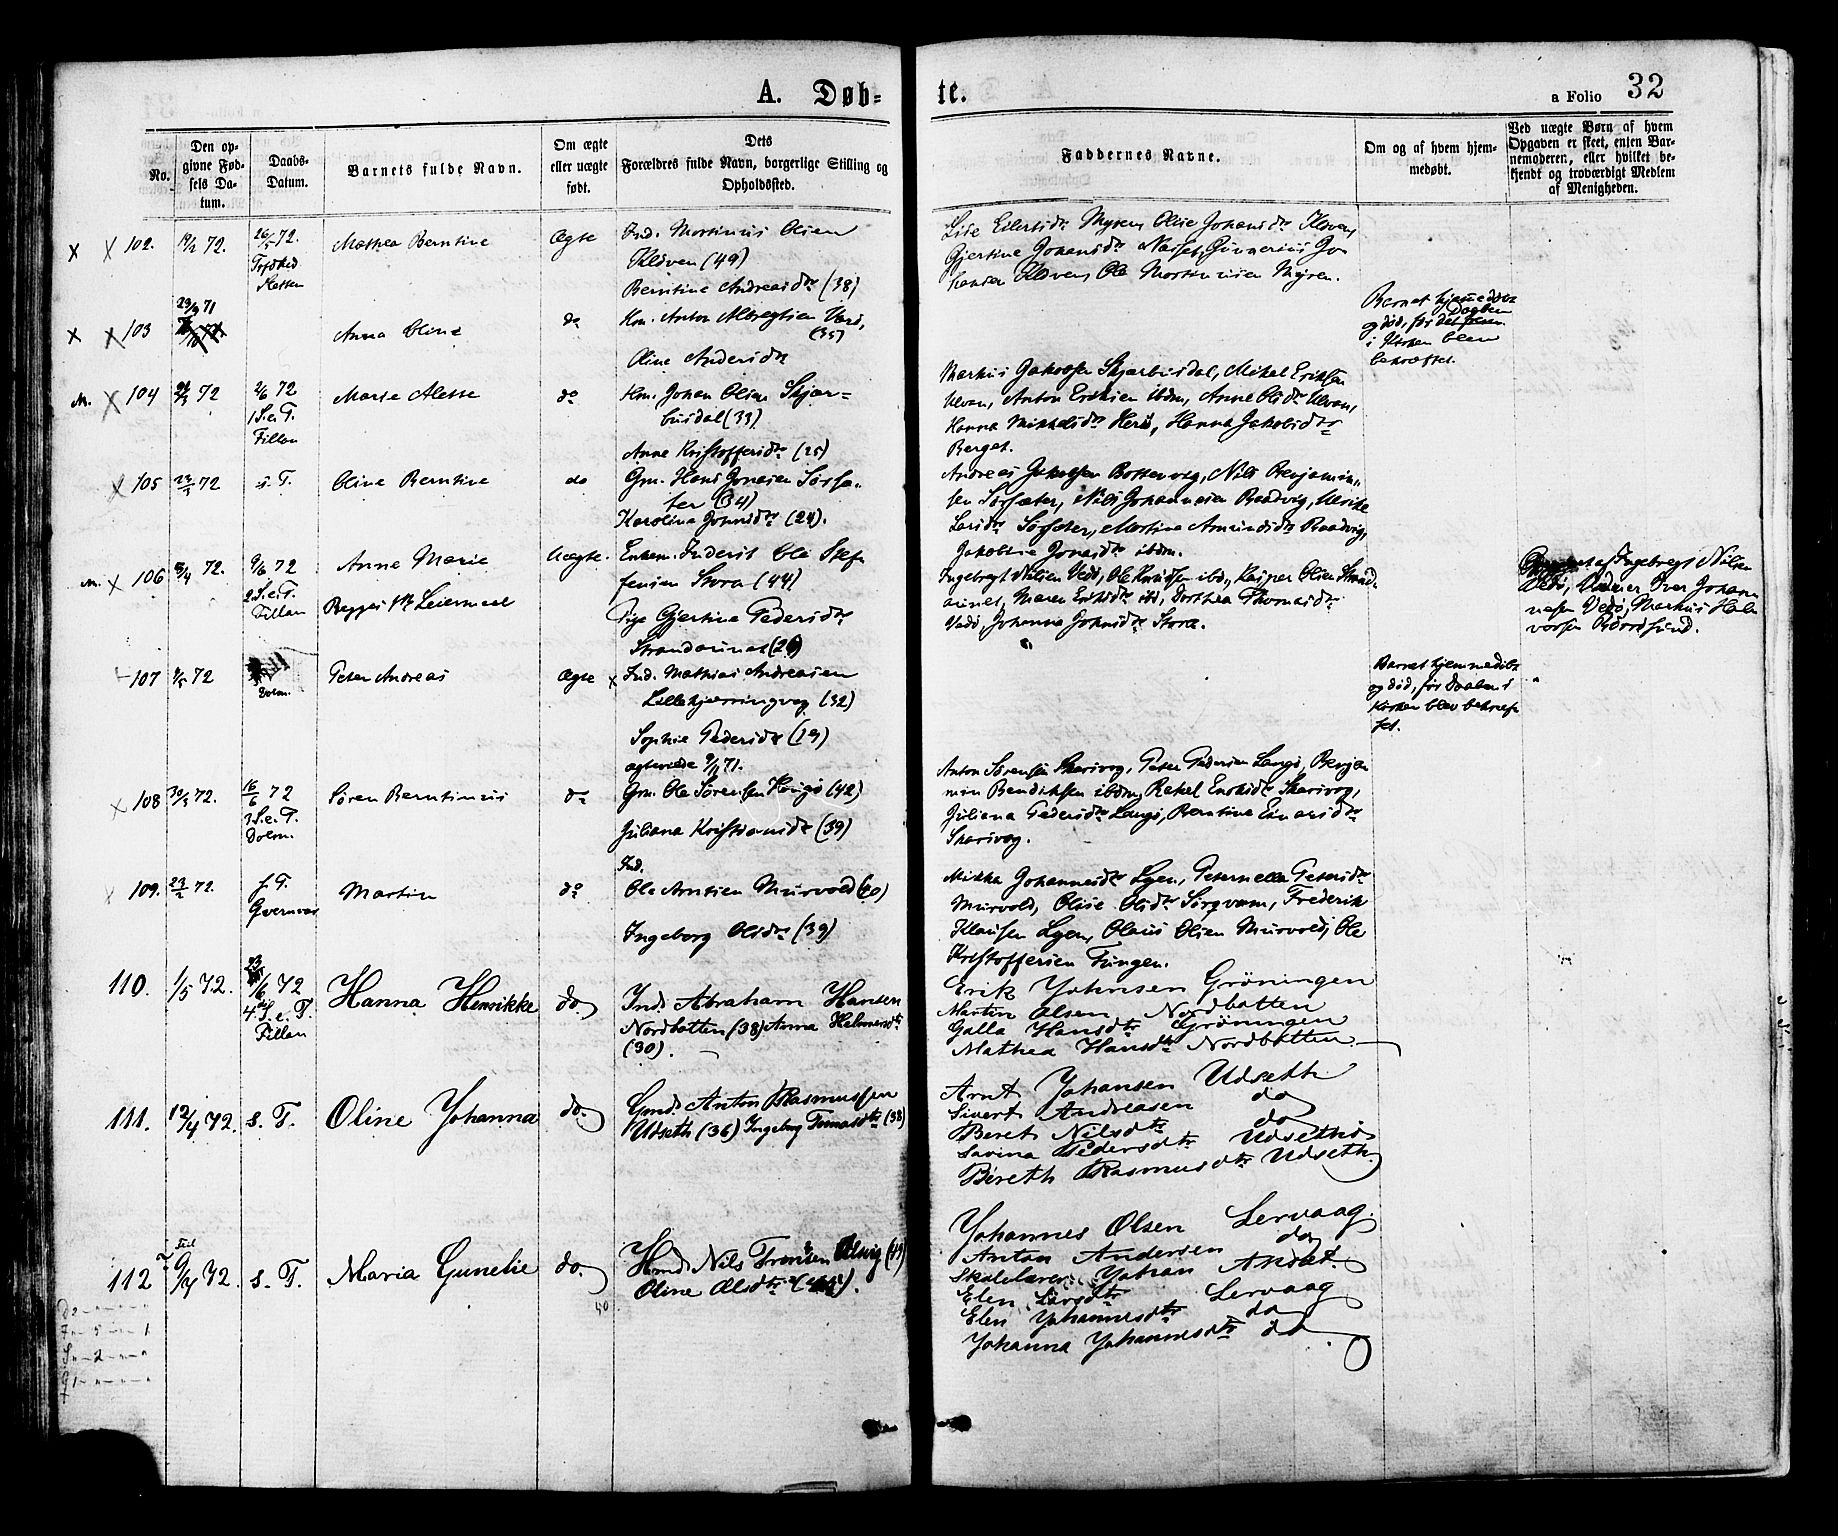 A. Døb-
te.
a Folio 32
No.
Den op-
givne Fød-
sels Da-
tum.
Daabs-
Datum.
Barnets fulde Navn.
Om ægte
eller uægte
født.
Dets
Forældres fulde Navn, borgerlige Stilling og
Opholdssted.
Faddernes Navne.
Om og af hvem hjem-
medøbt.
Ved uægte Børn af hvem
Opgaven er skeet, enten Bar-
nemoderen, eller hvilket be-
kjendt og troværdigt Medlem
af Menigheden.
x x 102. 19/2 72.
26/5 72.
Mathea Berntine
Ægte
Ind. Mortinus Olsen
Kløven (49)
Berntine Andreasdtr (38)
Lise Eilertsdtr Myren, Olise Johansdtr Kløven,
Gjertine Johansdtr Næsset, Gunnerius Jo-
hansen Kløven, Ole Mortinusen Myren.
x x 103
29/9 71
Anna Oline
do
Hm. Anton Albregtsen
(35)
Oline Andersdtr
Barnet hjemmedøbt
og død, før Daaben
i Kirken blev
bekræftet.
M. x 104 72
2/6 72
1 S. e. T.
Fillan
Marie Alette
do
Hm. Johan Olsen Skjær-
busdal (33)
Anne Kristoffersdtr (25)
Markus Jakobsen Skjærbusdal, Mikal Eriksen
Ulvan, Anton Eriksen ibdm, Anne Olsdtr Ulvan,
Hanna Mikkelsdtr Herø, Hanna Jakobsdtr
Berget.
x 105 72
s. T.
Oline Berntine
do
Gm. Hans Jonasen Sørsæ-
ter (34)
Karolina Johnsdtr (24).
Andreas Jakobsen Bottenvog, Nils Benjamin-
sen Sørsæter, Nils Johannesen Raadvig, Ulrike
Larsdtr Sørsæter, Martina Amundsdtr Raadvig,
Jakobine Jonasdtr ibdm.
M. x 106 5/4 72.
9/6 72
2 S. e. T.
Fillan
Anne Marie
Begges 1ste Leiermaal
Uægte.
Enkem. Inderst Ole Stef-
fensen Stora (44)
Pige Gjertine Pedersdtr
Strandaunet (26)
Ingebregt Nilsen Vedø, Ole Knudsen ibd., Kasper Olsen Strand-
aunet, Maren Eriksdtr ibd, Dorthea Thomasdtr
Vedø, Johanna Johnsdtr Stora.
af Ingebregt Nilsen
Vedø, Iver Johan-
nesen Vedø, Markus Hal-
vorsen
107 9/5 72
Dolm.
Peter Andreas
Ægte x
Ind. Mathias Andreasen
Lillekjerringvog (32)
Sophie Pedersdtr (19)
ægteviede 9/11 71.
Barnet hjemmedøbt
og død, før Daaben i
Kirken blev bekræf-
tet.
x 108 30/3 72.
16/6 72
3 S. e. T.
Dolm.
Søren Berntinus
do
Gm. Ole Sørensen Kongø (42)
Juliana Kristiansdtr (39)
Anton Sørensen Skarsvog, Peter Pedersen Langø, Benja-
min Bendiksen ibdm, Rakel Eriksdtr Skarsvog,
Juliana Pedersdtr Langø, Berntine Einarsdtr
Skarsvog.
109. 23/2 72.
f. T.
Martin
do
Ind.
Ole Arntsen Murvold (40)
Ingeborg Olsdtr (39)
Mikka Johannesdtr Lyen, Peternella Petersdtr
Murvold, Olise Olsdtr Sørgvam, Frederik
Klausen Lyen, Olaus Olsen Murvold, Ole
Kristoffersen Tungen.
110. 1/5 72.
23/6 72
4 S. e. T.
Fillan
Hanna Henrikke
do.
Ind. Abraham Hansen
Nordbotten (38) Anna Helmersdtr
(30).
Erik Johnsen Grøningen
Martin Olsen Nordbotten
Galla Hansdtr Grøningen
Mathea Hansdtr Nordbotten.
111. 12/4 72.
s. T.
Oline Johanna
do.
Gmd. Anton Rasmussen
Udseth (36) Ingebrg Tomasdtr (38)
Arnt Johansen Udseth
Sivert Andreasen do
Beret Nilsdtr do
Savina Pedersdtr Udsethø
Bereth Rasmusdtr Udseth.
112 6/4 72.
s. T.
Maria Gunelie
do.
Hmd. Nils Olsvig
Oline Olsdtr
40
Johannes Olsen Lervaag.
Anton Andersen do
Skolelærer Johan
Elen Larsdtr Lervaag
Elen Johannesdtr do
Johanna Johannesdtr do.